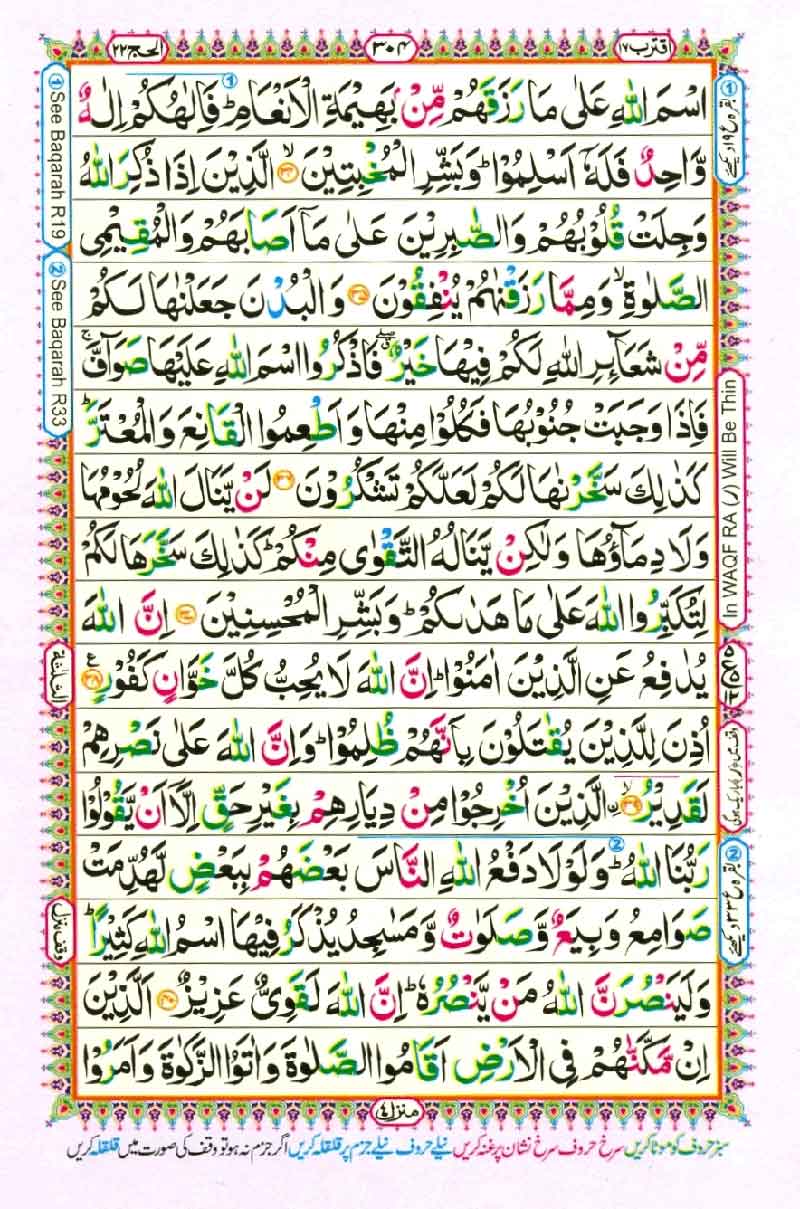 الحج ٢٢
٣٠٤
اقترب ١٧
اسْمَ اللّٰهِ عَلٰى مَا رَزَقَهُمْ مِّنْۢ بَهِيْمَةِ الْاَنْعَامِ ؕ فَاِلٰهُكُمْ اِلٰهٌ
وَّاحِدٌ فَلَهٗۤ اَسْلِمُوْا ؕ وَبَشِّرِ الْمُخْبِتِيْنَ ۙ‏﴿۳۴﴾ الَّذِيْنَ اِذَا ذُكِرَ اللّٰهُ
وَجِلَتْ قُلُوْبُهُمْ وَالصّٰبِرِيْنَ عَلٰى مَاۤ اَصَابَهُمْ وَالْمُقِيْمِى
الصَّلٰوةِ ۙ وَمِمَّا رَزَقْنٰهُمْ يُنْفِقُوْنَ ﴿۳۵﴾ وَالْبُدْنَ جَعَلْنٰهَا لَكُمْ
مِّنْ شَعَآئِرِ اللّٰهِ لَكُمْ فِيْهَا خَيْرٌ ۖ ق فَاذْكُرُوا اسْمَ اللّٰهِ عَلَيْهَا صَوَآفَّ ۚ
فَاِذَا وَجَبَتْ جُنُوْبُهَا فَكُلُوْا مِنْهَا وَاَطْعِمُوا الْقَانِعَ وَالْمُعْتَرَّ ؕ
كَذٰلِكَ سَخَّرْنٰهَا لَكُمْ لَعَلَّكُمْ تَشْكُرُوْنَ ﴿۳۶﴾ لَنْ يَّنَالَ اللّٰهَ لُحُوْمُهَا
وَلَا دِمَآؤُهَا وَلٰكِنْ يَّنَالُهُ التَّقْوٰى مِنْكُمْ ؕ كَذٰلِكَ سَخَّرَهَا لَكُمْ
لِتُكَبِّرُوا اللّٰهَ عَلٰى مَا هَدٰٮكُمْ ؕ وَبَشِّرِ الْمُحْسِنِيْنَ ﴿۳۷﴾ اِنَّ اللّٰهَ
يُدٰفِعُ عَنِ الَّذِيْنَ اٰمَنُوْا ؕ اِنَّ اللّٰهَ لَا يُحِبُّ كُلَّ خَوَّانٍ كَفُوْرٍ ﴿۳۸﴾ ع
اُذِنَ لِلَّذِيْنَ يُقٰتَلُوْنَ بِاَنَّهُمْ ظُلِمُوْا ؕ وَاِنَّ اللّٰهَ عَلٰى نَصْرِهِمْ
لَقَدِيْرُ ۙ ﴿۳۹﴾ ن الَّذِيْنَ اُخْرِجُوْا مِنْ دِيَارِهِمْ بِغَيْرِ حَقٍّ اِلَّاۤ اَنْ يَّقُوْلُوْا
رَبُّنَا اللّٰهُ ؕ وَلَوْلَا دَفْعُ اللّٰهِ النَّاسَ بَعْضَهُمْ بِبَعْضٍ لَّهُدِّمَتْ
صَوَامِعُ وَبِيَعٌ وَّصَلَوٰتٌ وَّمَسٰجِدُ يُذْكَرُ فِيْهَا اسْمُ اللّٰهِ كَثِيْرًا ؕ
وَلَيَنْصُرَنَّ اللّٰهُ مَنْ يَّنْصُرُهٗ ؕ اِنَّ اللّٰهَ لَقَوِىٌّ عَزِيْزٌ ﴿۴۰﴾ اَلَّذِيْنَ
اِنْ مَّكَّنّٰهُمْ فِى الْاَرْضِ اَقَامُوا الصَّلٰوةَ وَاٰتَوُا الزَّكٰوةَ وَاَمَرُوْا
① See Baqarah R19
② See Baqarah R33
الثلٰثة
وقف نزل
① بقرہ ع ١٩ دیکھئے
In WAQF RA (ر) Will Be Thin
② بقرہ ع ٣٣ دیکھئے
منزل ٤
سبز حروف کو موٹا کریں سرخ حروف سرخ نشان پر غنہ کریں نیلے حروف نیلے جزم پر قلقلہ کریں اگر جزم نہ ہو تو وقف کی صورت میں قلقلہ کریں